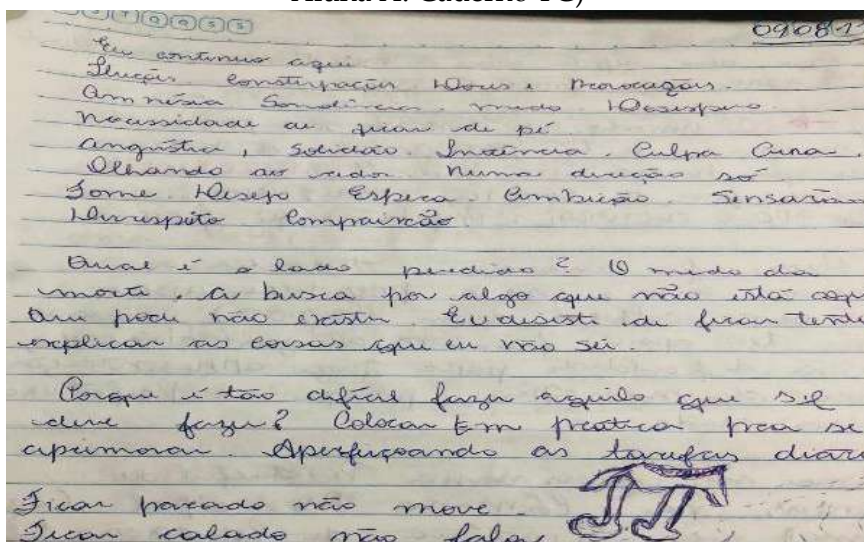 D S T Q Q S S
090811
Eu continuo aqui
constipação e Provocações.
Amnésia medo Desespero
Necessidade de ficar de pé
angústia, solidão. Culpa
Olhando ao redor. Numa direção só
Fome Desejo Espera Ambição Sensação
Desrespeito Compaixão
Qual é o lado perdido? O medo da
morte. A busca por algo que não está aqui
Que pode não existir. Eu desisti de ficar
explicar as coisas que eu não sei.
Porque é tão difícil fazer aquilo que se
deve fazer? Colocar Em pratica pra se
aprimorar. Aperfeiçoando as tarefas
Ficar parado não move.
Ficar calado não fala